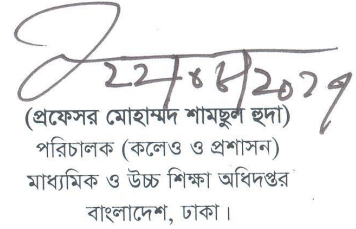 (প্রফেসর মোহাম্মদ শামছুল হুদা)
পরিচালক (কলেও ও প্রশাসন)
মাধ্যমিক ও উচ্চ শিক্ষা অধিদপ্তর
বাংলাদেশ, ঢাকা।